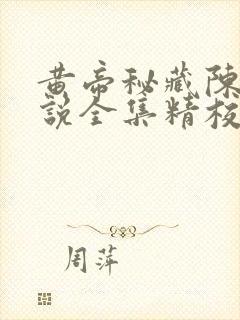 黄帝秘藏陳
説全集精校
周萍